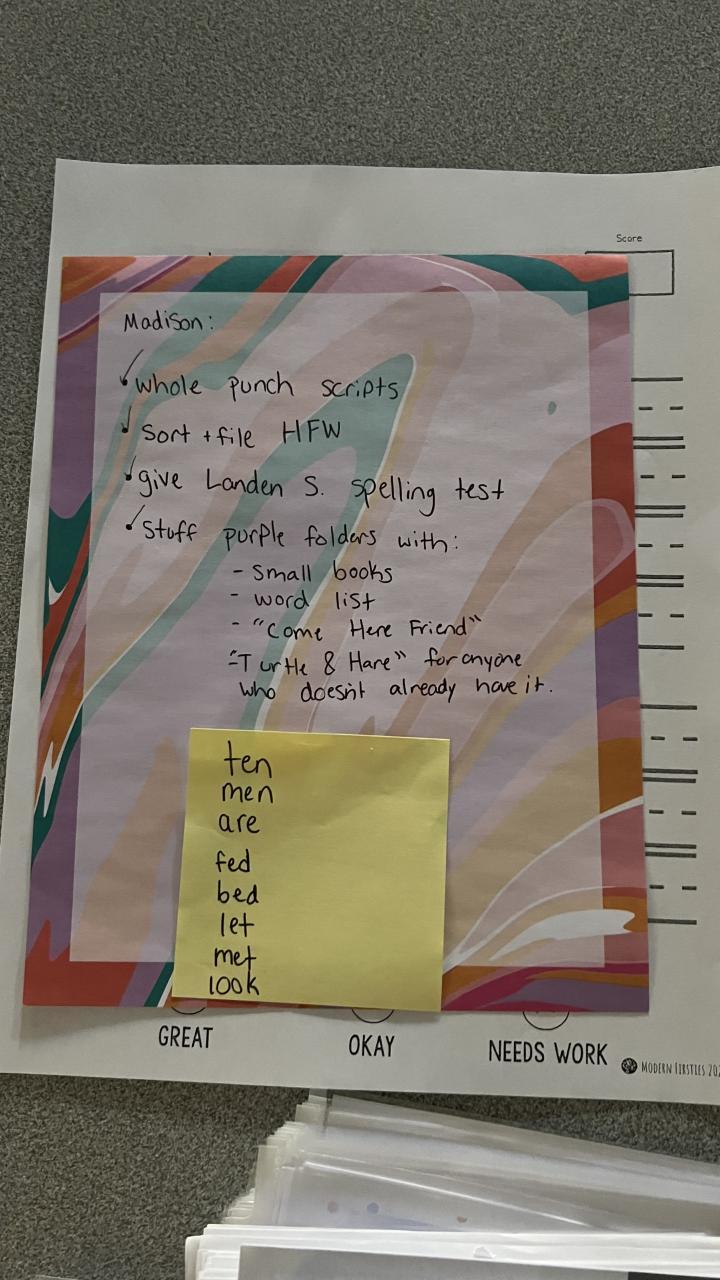 Score
Madison:
✓ whole punch scripts
✓ Sort + file HFW
✓ give Landen S. spelling test
✓ Stuff purple folders with:
- Small books
- word list
- "Come Here Friend"
- "Turtle & Hare" for anyone
who doesn't already have it.
ten
men
are
fed
bed
let
met
look
GREAT OKAY NEEDS WORK
MODERN FIRSTIES